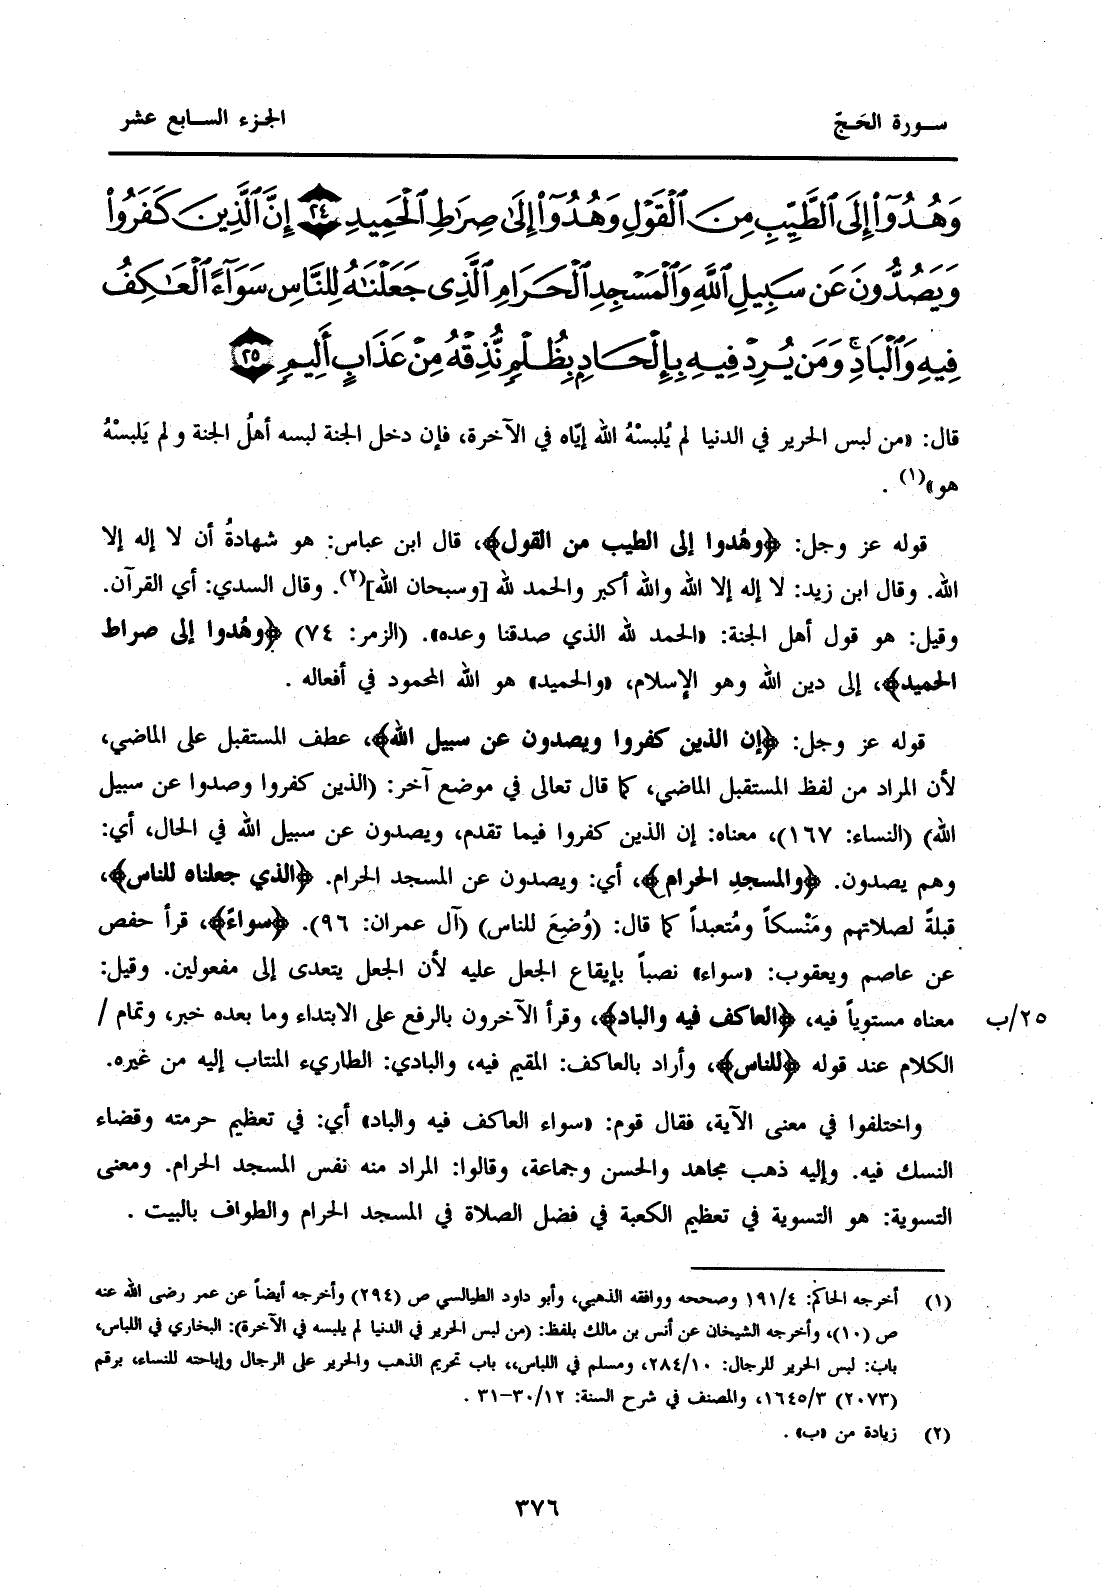 سورة الحَجّ
الجزء السابع عشر
وَهُدُوٓاْ إِلَى ٱلطَّيِّبِ مِنَ ٱلۡقَوۡلِ وَهُدُوٓاْ إِلَىٰ صِرَٰطِ ٱلۡحَمِيدِ ٢٤ إِنَّ ٱلَّذِينَ كَفَرُواْ
وَيَصُدُّونَ عَن سَبِيلِ ٱللَّهِ وَٱلۡمَسۡجِدِ ٱلۡحَرَامِ ٱلَّذِى جَعَلۡنَٰهُ لِلنَّاسِ سَوَآءً ٱلۡعَٰكِفُ
فِيهِ وَٱلۡبَادِۚ وَمَن يُرِدۡ فِيهِ بِإِلۡحَادِۭ بِظُلۡمٍ نُّذِقۡهُ مِنۡ عَذَابٍ أَلِيمٍ ٢٥
قال: «من لبس الحرير في الدنيا لم يُلبسْهُ الله إيّاه في الآخرة، فإن دخل الجنة لبسه أهلُ الجنة و لم يَلبسْهُ
هو»(١) .
قوله عز وجل: ﴿وهُدوا إلى الطيب من القول﴾، قال ابن عباس: هو شهادةُ أن لا إله إلا
الله. وقال ابن زيد: لا إله إلا الله والله أكبر والحمد لله [وسبحان الله](٢). وقال السدي: أي القرآن.
وقيل: هو قول أهل الجنة: «الحمد لله الذي صدقنا وعده». (الزمر: ٧٤) ﴿وهُدوا إلى صراط
الحميد﴾، إلى دين الله وهو الإسلام، «والحميد» هو الله المحمود في أفعاله .
قوله عز وجل: ﴿إن الذين كفروا ويصدون عن سبيل الله﴾، عطف المستقبل على الماضي،
لأن المراد من لفظ المستقبل الماضي، كما قال تعالى في موضع آخر: (الذين كفروا وصدوا عن سبيل
الله) (النساء: ١٦٧)، معناه: إن الذين كفروا فيما تقدم، ويصدون عن سبيل الله في الحال، أي:
وهم يصدون. ﴿والمسجدِ الحرام﴾، أي: ويصدون عن المسجد الحرام. ﴿الذي جعلناه للناس﴾،
قبلةً لصلاتهم ومَنْسكاً ومُتعبداً كما قال: (وُضِعَ للناس) (آل عمران: ٩٦). ﴿سواءً﴾، قرأ حفص
عن عاصم ويعقوب: «سواء» نصباً بإيقاع الجعل عليه لأن الجعل يتعدى إلى مفعولين. وقيل:
معناه مستوياً فيه، ﴿العاكف فيه والباد﴾، وقرأ الآخرون بالرفع على الابتداء وما بعده خبر، وتمام /
٢٥/ب
الكلام عند قوله ﴿للناس﴾، وأراد بالعاكف: المقيم فيه، والبادي: الطاريء المنتاب إليه من غيره.
واختلفوا في معنى الآية، فقال قوم: «سواء العاكف فيه والباد» أي: في تعظيم حرمته وقضاء
النسك فيه. وإليه ذهب مجاهد والحسن وجماعة، وقالوا: المراد منه نفس المسجد الحرام. ومعنى
التسوية: هو التسوية في تعظيم الكعبة في فضل الصلاة في المسجد الحرام والطواف بالبيت .
(١) أخرجه الحاكم: ١٩١/٤ وصححه ووافقه الذهبي، وأبو داود الطيالسي ص (٢٩٤) وأخرجه أيضاً عن عمر رضى الله عنه
ص (١٠)، وأخرجه الشيخان عن أنس بن مالك بلفظ: (من لبس الحرير في الدنيا لم يلبسه في الآخرة): البخاري في اللباس،
باب: لبس الحرير للرجال: ٢٨٤/١٠، ومسلم في اللباس،، باب تحريم الذهب والحرير على الرجال وإباحته للنساء، برقم
(٢٠٧٣) ١٦٤٥/٣، والمصنف في شرح السنة: ٣٠/١٢-٣١ .
(٢) زيادة من «ب» .
٣٧٦